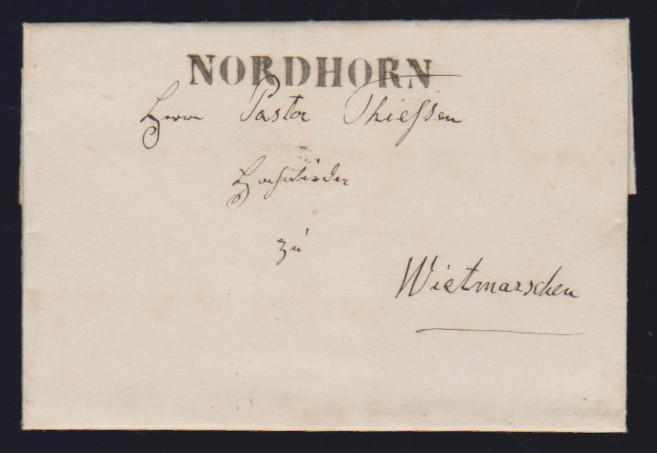 NORDHORN
Herrn Pastor Thießen
Hochwürden
zu
Wietmarschen